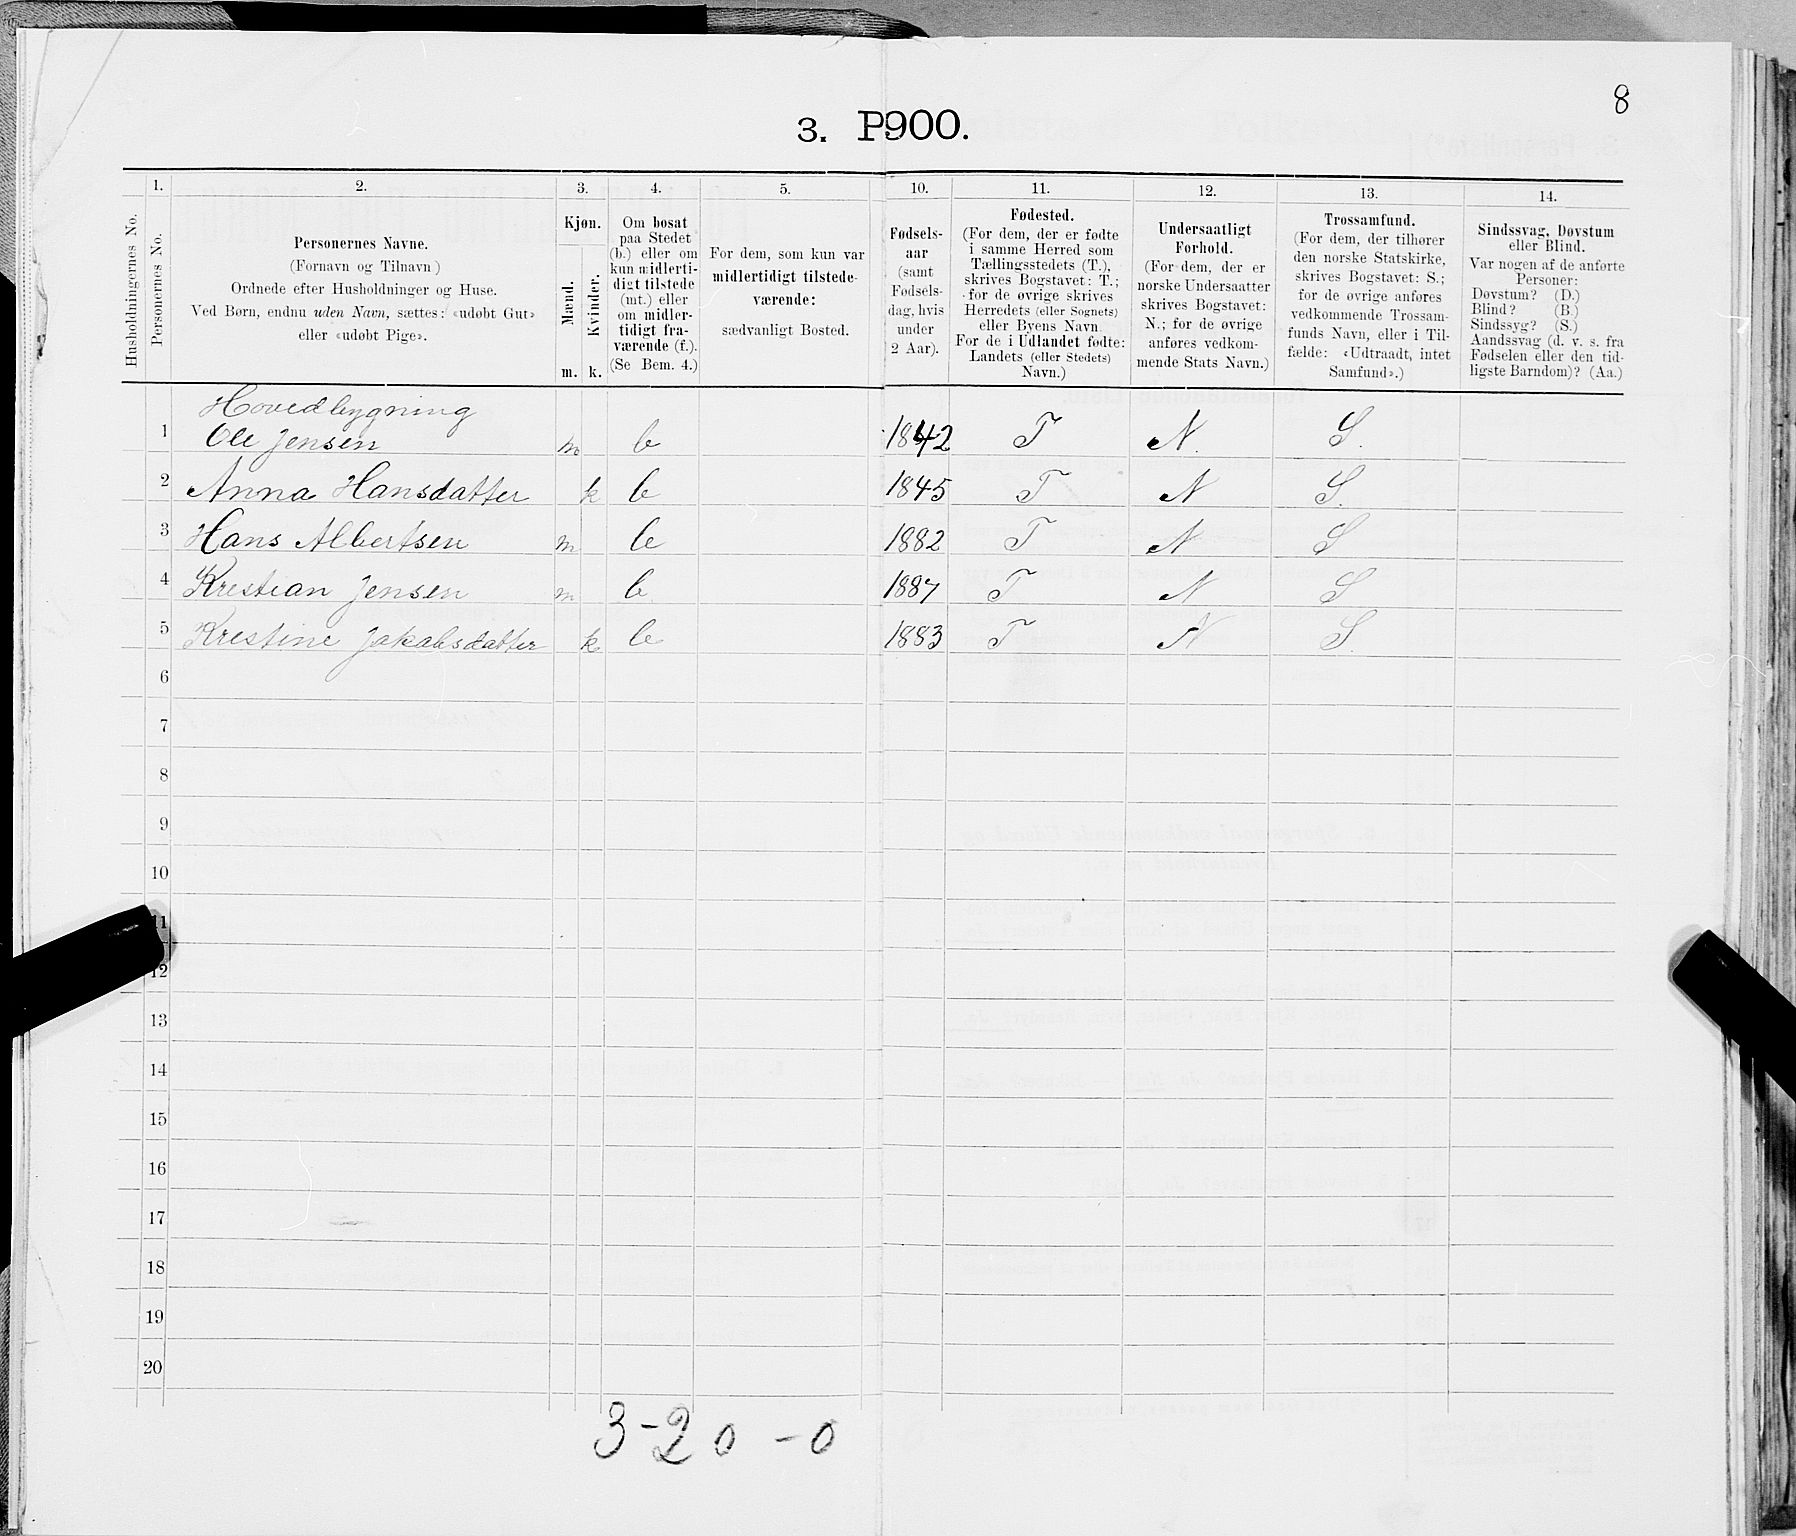 8
3. P900.
1. 2. 3. 4. 5. 10. 11. 12. 13. 14.
Husholdningernes No.
Personernes No.
Personernes Navne.
(Fornavn og Tilnavn)
Ordnede efter Husholdninger og Huse.
Ved Børn, endnu uden Navn, sættes: «udøbt Gut»
eller «udøbt Pige».
Kjøn.
Mænd.
Kvinder.
m. k.
Om bosat
paa Stedet
(b.) eller om
kun midlerti-
digt tilstede
(mt.) eller
om midler-
tidigt fra-
værende (f.).
(Se Bem. 4.)
For dem, som kun var
midlertidigt tilstede-
værende:
sædvanligt Bosted.
Fødsels-
aar
(samt
Fødsels-
dag, hvis
under
2 Aar).
Fødested.
(For dem, der er fødte
i samme Herred som
Tællingsstedets (T.),
skrives Bogstavet: T.;
for de øvrige skrives
Herredets (eller Sognets)
eller Byens Navn.
For de i Udlandet fødte:
Landets (eller Stedets)
Navn.)
Undersaatligt
Forhold.
(For dem, der er
norske Undersaatter
skrives Bogstavet:
N.; for de øvrige
anføres vedkom-
mende Stats Navn.)
Trossamfund.
(For dem, der tilhører
den norske Statskirke,
skrives Bogstavet: S.;
for de øvrige anføres
vedkommende Trossam-
funds Navn, eller i Til-
fælde: «Udtraadt, intet
Samfund».)
Sindssvag, Døvstum
eller Blind.
Var nogen af de anførte
Personer:
Døvstum? (D.)
Blind? (B.)
Sindssyg? (S.)
Aandssvag (d. v. s. fra
Fødselen eller den tid-
ligste Barndom)? (Aa.)
Hovedbygning
1 Ole Jensen m b 1842 T N. S.
2 Anna Hansdatter k b 1845 T N S.
3 Hans Albertsen m b 1882 T N S
4 Krestian Jensen m b 1887 T N S
5 Krestine Jakabsdatter k b 1883 T N S.
6
7
8
9
10
11
12
13
14
15
16
17
18
19
20
3-2 0 - 0